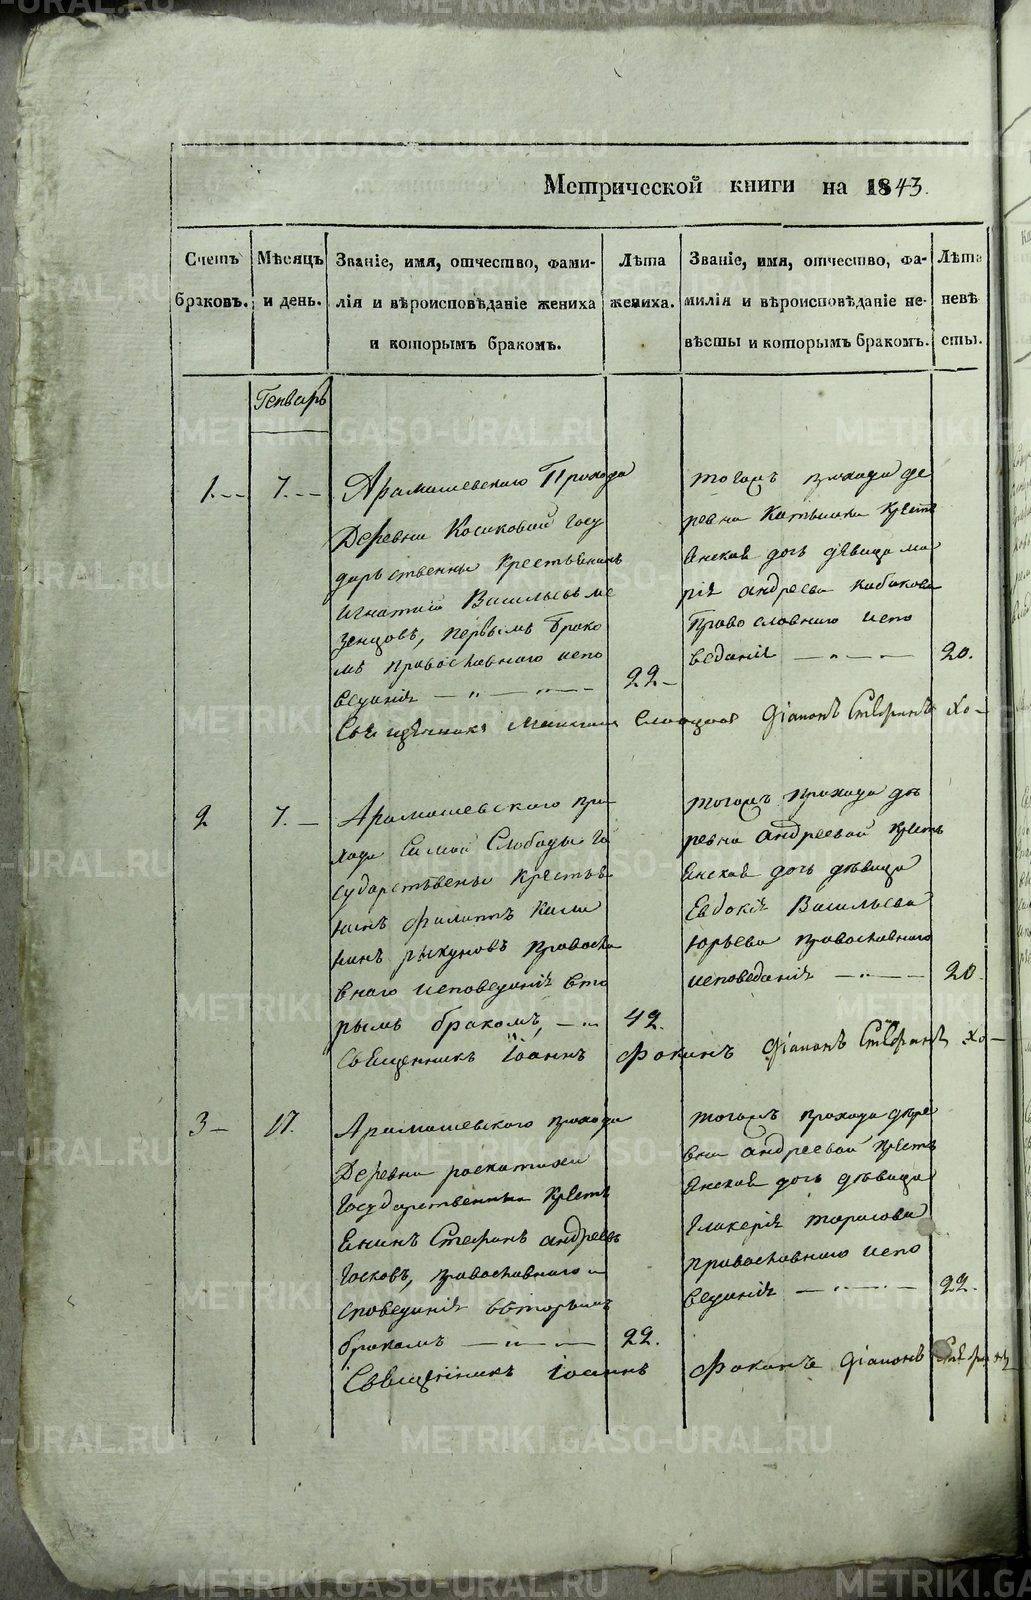 METRIKI.GASO-URAL.RU
Метрической книги на 1843.
Счетъ браковъ.
Мѣсяцъ и день.
Званіе, имя, отчество, фами-
лія и вѣроисповѣданіе жениха
и которымъ бракомъ.
Лѣта жениха.
Званіе, имя, отчество, фа-
милія и вѣроисповѣданіе не-
вѣсты и которымъ бракомъ.
Лѣта невѣсты.
Генварь
1.
7.
Арамашевскаго Прихода
Деревни Косиковой госу
дарственны Крестьянинъ
Игнатій Васильевъ ме
зенцовъ, первымъ брако
мъ православнаго испо
веданія
22
тогожъ прихода де
ревни Катышки Крестъ
янская дочь дѣвица ма
рія андреева кабакова
Православнаго испо
веданія
20.
Священникъ Діаконъ Стефанъ Хо-
2
7.
Арамашевскаго при
хода Самой Слободы Го
сударственны Крестья
нинъ Филиппъ
православ
внаго исповеданія вто
рымъ бракомъ,
42.
тогожъ прихода де
ревни андреевой крестъ
янская дочь дѣвица
Евдокія Васильева
юрьева православнаго
исповеданія
20.
Священникъ Іоаннъ Фокинъ Діаконъ Стефанъ Хо-
3
17.
Арамашевскаго прихода
Деревни раскатихи
Государственны Крестъ
янинъ Стефанъ андреевъ
Госковъ, православнаго и
споведанія вторымъ
бракомъ
22.
тогожъ прихода дере
вни андреевой крестъ
янская дочь дѣвица
Гликерія тарасова
православнаго испо
веданія
22.
Священникъ Іоаннъ Фокинъ Діаконъ